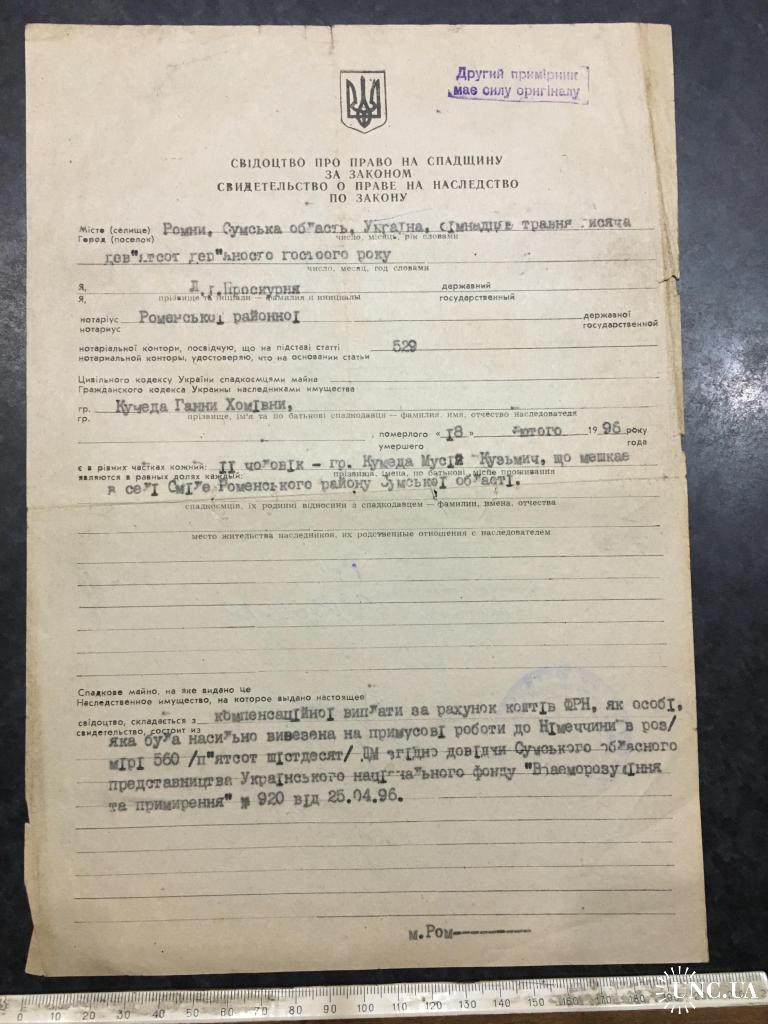 Другий примірник
має силу оригіналу
СВІДОЦТВО ПРО ПРАВО НА СПАДЩИНУ
ЗА ЗАКОНОМ
СВИДЕТЕЛЬСТВО О ПРАВЕ НА НАСЛЕДСТВО
ПО ЗАКОНУ
Місто (селище) Ромни, Сумська область, Україна, сімнадцяте травня тисяча
Город (поселок) число, місяць, рік словами
дев"ятсот дев"яносто шостого року
число, месяц, год словами
Я, Л.І.Проскурня державний
Я, прізвище та ініціали — фамилия и инициалы государственный
нотаріус Роменської районної державної
нотариус государственной
нотаріальної контори, посвідчую, що на підставі статті 529
нотариальной конторы, удостоверяю, что на основании статьи
Цивільного кодексу України спадкоємцями майна
Гражданского кодекса Украины наследниками имущества
гр. Кумеда Ганни Хомівни,
гр. прізвище, ім'я та по батькові спадкодавця — фамилия, имя, отчество наследователя
, померлого «18» лютого 1996 року
умершего года
є в рівних частках кожний: II чоловік - гр. Кумеда Мусій Кузьмич, що мешкає
являются в равных долях каждый: прізвища, імена, по батькові, місце проживання
в селі Сміле Роменського району Сумської області.
спадкоємців, їх родинні відносини з спадкодавцем — фамилии, имена, отчества
место жительства наследников, их родственные отношения с наследователем
Спадкове майно, на яке видано це
Наследственное имущество, на которое выдано настоящее
свідоцтво, складається з компенсаційної виплати за рахунок коштів ФРН, як особі,
свидетельство, состоит из
яка була насильно вивезена на примусові роботи до Німеччини в роз/
мірі 560 /п"ятсот шістдесят/ ДМ згідно довідки Сумського обласного
представництва Українського національного фонду "Взаєморозуміння
та примирення" № 920 від 25.04.96.
м.Ром----------
0 10 20 30 40 50 60 70 80 90 100 110 120 130 140 150 160 170 180
UNC.UA